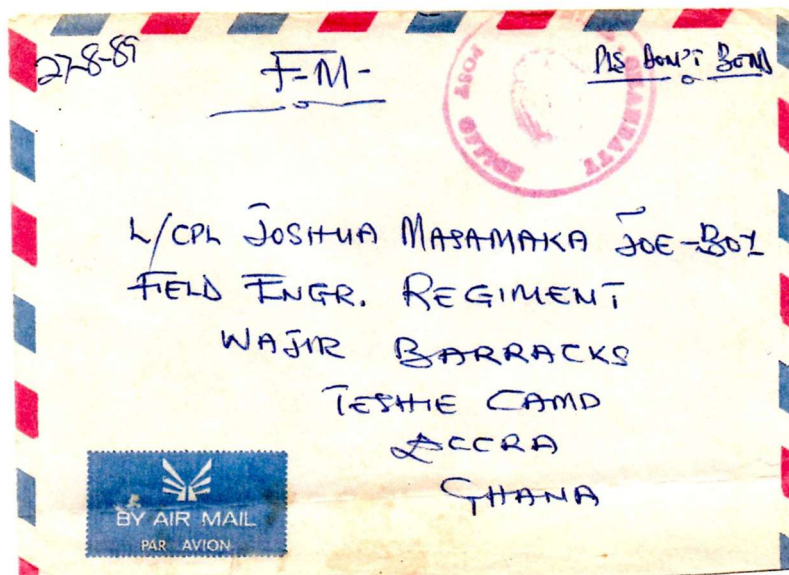 27-8-89
F-M-
PLS DON'T BEND
GHANBATT
POST OFFICE
L/CPL JOSHUA MASAMAKA JOE-BOY
FIELD ENGR. REGIMENT
WAJIR BARRACKS
TESHIE CAMP
ACCRA
GHANA
BY AIR MAIL
PAR AVION